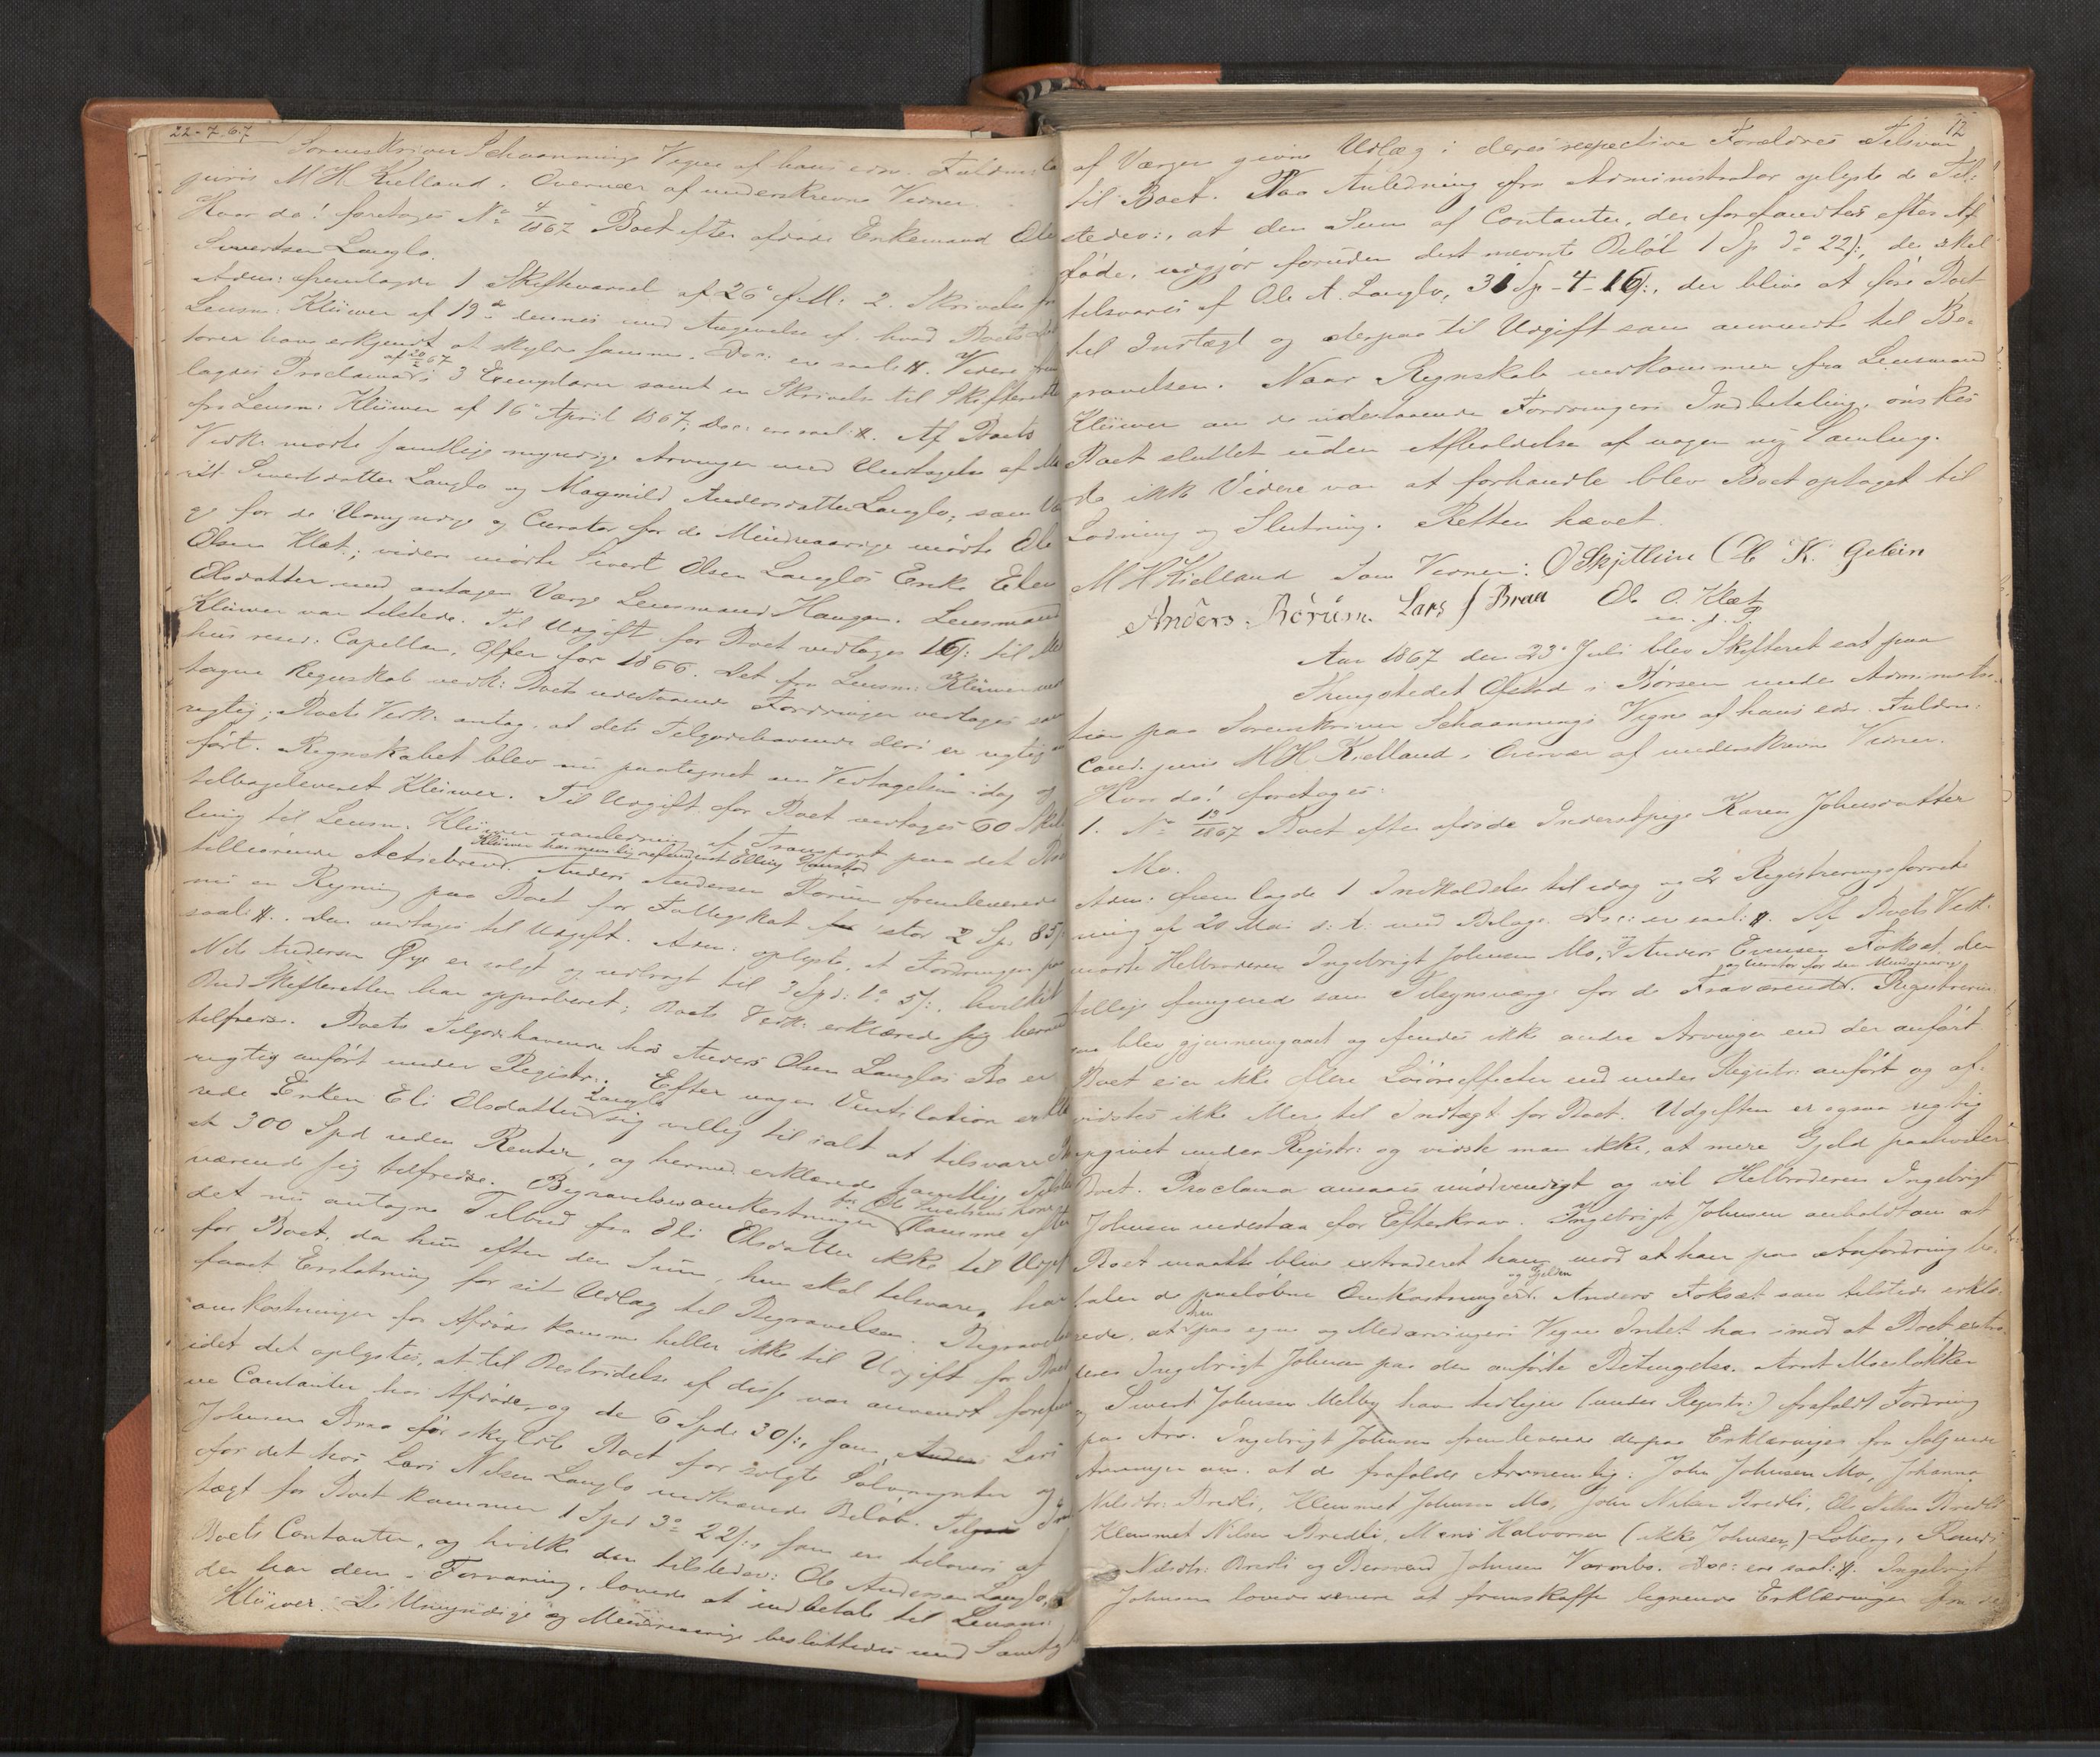 22-7-67
Sorenskriver Schaannings Vegne af hans edsv. Fuldm:
juris M H Kielland, Overvær af underskrevne Vidner.
Hvor da! foretoges No 4/1867 Boet efter afdøde Enkemand Ole
Sivertsen Langlo.
Adm: fremlagde 1 Skiftevarsel af 26de f. M: 2. Skrivelse fra
Lensm: Klüwer af 19de dennes med Angivelse af hvad Boets
torer have erkjendt at skylde samme. Doc: er saal: #. Videre frem
lagdes Proclama af 20/2 67 i 3 Exemplarer samt en Skrivelse til Skifteretten
fra Lensm: Klüwer af 16de April 1867, Doc: ere saal: #. Af Boets
Vedk. mødte samtlige myndige Arvinger med Undtagelse af
rit Sivertsdatter Langlo og Magnild Andersdatter Langlo; som Vær
ge for de Umyndige og Curator for de Mindreaarige mødte Ole
Olsen Klæt; videre mødte Sivert Olsen Langlos Enke Eli
Olsdatter med antagen Værge Lensmand Haugan. Lensmand
Klüwer var tilstede. Til Udgift for Boet vedtoges 16 /: til Mel
hus resid: Capellan, Offer for 1866. Det fra Lensm: Klüwer mod
tagne Regnskab vedk: Boets udestaaende Fordringer vedtoges som
rigtig; Boets Vedk. antog, at dets Tilgodehavende deri er rigtig an
ført. Regnskabet blev nu paategnet om Vedtagelsen idag og
tilbageleveret Klüwer. Til Udgift for Boet vedtoges 60 Skil
ling til Lensm. Klüwer anledning af Transport paa det Boet
Klüwer har nemlig refunderet Elling
tilhørende Actiebrev. Anders Andersen Børum fremleverede
nu en Regning paa Boet for Fattigskat stor 2 Sp. 85 /:
saal: #. Den vedtoges til Udgift. Adm. oplyste, at Fordringen paa
Nils Andersen Øye er solgt og udbragt til 3 Spd: 1 ^ 5 /:, hvilket
Bud Skifteretten har approberet; Boets Vedk: erklærede sig hermed
tilfreds. Boets Tilgodehavende hos Anders Olsen Langlos Bo er
rigtig anført under Registr:. Efter nogen Ventilation erklæ
rede Enken Eli Olsdatter Langlo sig villig til ialt at tilsvare Bo
et 300 Spd uden Renter, og hermed erklærede samtlige Tilste
værende sig tilfredse. Begravelsesomkostninger for Ole Sivertsens Kone komme efter
det nu antagne Tilbud fra Eli Olsdatter ikke til Udgift
for Boet, da hun efter den Sum, hun skal tilsvare, har
faaet Erstatning for sit Udlæg til Begravelsen. Begravelses
omkostninger for Afdøde komme heller ikke til Udgift for Boet
idet det oplystes, at til Bestridelse af disse var anvendt forefund
ne Contanter hos Afdøde, og de 6 Spd. 30 /:, som Lars
Johnsen Braa før skyldte Boet for solgte Sølvmynter og
for det hos Lars Nilsen Langlo indkrævede Beløb. Ind
tægt for Boet kommer 1 Spd 3 ^ 22 /:, som er tilovers af
Boets Contanter, og hvilke den tilstedev: Ole Andersen Langlo,
der har dem i Forvaring, lovede at indbetale til Lensm:
Klüwer. De Umyndige og Mindreaarige besluttedes med Samtykke
12
af Værgen givne Udlæg i deres respective Forældres Tilsvar
til Boet. Paa Anledning fra Administrator oplyste de Til:
stedev:, at den Sum af Contanter, der forefandtes efter Af
døde, udgjør foruden det nævnte Beløb 1 Sp 3 ^ 22 /:, der skal
tilsvares af Ole A. Langlo, 31 Sp - 4 - 16 /:, der blive at føre Boet
til Indtægt og derpaa til Udgift som anvendt til Be-
gravelsen. Naar Regnskab indkommer fra Lensmand
Klüwer om de udestaaende Fordringers Indbetaling, ønskes
Boet sluttet uden Afholdelse af nogen ny Samling.
Da ikke Videre var at forhandle blev Boet optaget til
Lodning og Slutning. Retten hævet.
M H Kielland Som Vidner: O Skjetlein Ole K. Gelein
Anders Børum. Lars J Braa Ole O. Klæt
m. p. P
Aar 1867 den 23de Juli blev Skifteret sat paa
Thingstedet Ofstad i Børsen under Administra-
tion paa Sorenskriver Schaannings Vegne af hans edsv. Fuldm:
cand. juris M H Kielland, Overvær af underskrevne Vidner.
Hvor da! foretoges:
1. No 13/1867 Boet efter afdøde Inderstpige Karen Johnsdatter
Mo.
Adm: fremlagde 1 Indkaldelse til idag og 2 Registreringsforret
ning af 20 Mai d: A: med Bilage. Doc: ere saal: #. Af Boets Vedk.
mødte Helbroderen Ingebrigt Johnsen Mo, og Anders Evensen Foksæt, der
tillige fungerede som Tilsynsværge for de Fraværende og Curator for den Mindreaarige. Registrerin
gen blev gjennemgaaet og fandtes ikke andre Arvinger end der anført.
Boet eier ikke flere Løsøreeffecter end under Registr: anført og af-
vidstes ikke Mere til Indtægt for Boet. Udgiften er ogsaa rigtig
opgivet under Registr: og vidste man ikke, at mere Gjeld paahviler
Boet. Proclama ansaaes unødvendigt og vil Helbroderen Ingebrigt
Johnsen indestaa for Efterkrav. Ingebrigt Johnsen anholdt om at
Boet maatte blive extraderet ham mod at han paa Anfordring be-
taler de paaløbne Omkostninger og Gjelden. Anders Foksæt som tilstede erklæ-
rede, at han paa egne og Medarvingers Vegne Intet har imod at Boet extra-
deres Ingebrigt Johnsen paa den anførte Betingelse. Arnt Moeslökken
og Sivert Johnsen Melby have tidligere (under Registr:) frafaldt Fordring
paa Arv. Ingebrigt Johnsen fremleverede derpaa Erklæringer fra følgende
Arvinger om at de frafalde Arv nemlig: John Johnsen Mo, Johanna
Nilsdtr: Bredli, Klemmet Johnsen Mo, John Nilsen Bredli, Ole Nilsen Bredli
Klemmet Nilsen Bredli, Mons Halvorsen (ikke Johnsen) Loberg, Randi
Nilsdtr: Bredli og Beravend Johnsen Varmbo. Doc: ere saal: #. Ingebrigt
Johnsen lovede senere at fremskaffe lignende Erklæringer fra de